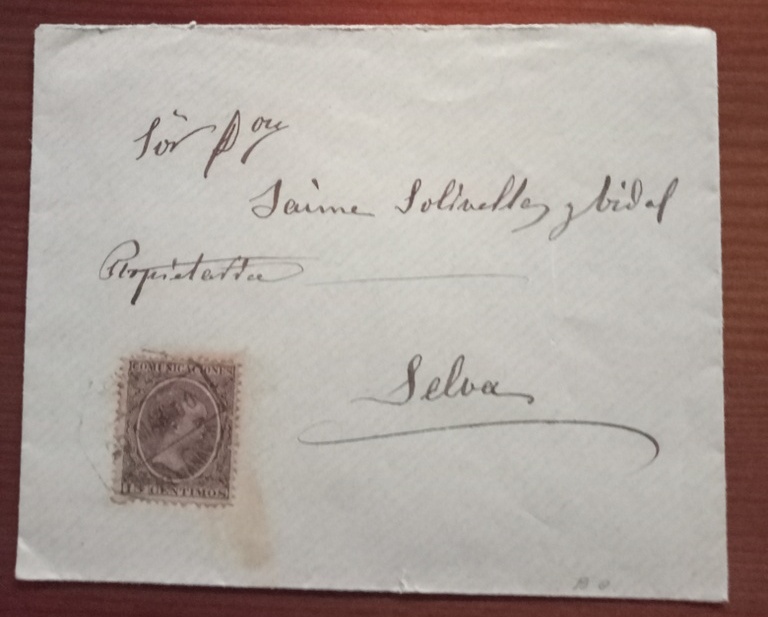 Sör Don
Jaime Solivellas y Vidal
Propietario
Selva
COMUNICACIONES
15 CENTIMOS